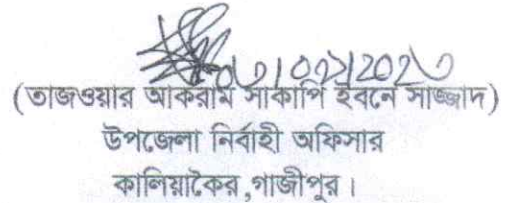 ০৬/০৭/২০২৩
(তাজওয়ার আকরাম সাকাপি ইবনে সাজ্জাদ)
উপজেলা নির্বাহী অফিসার
কালিয়াকৈর,গাজীপুর।